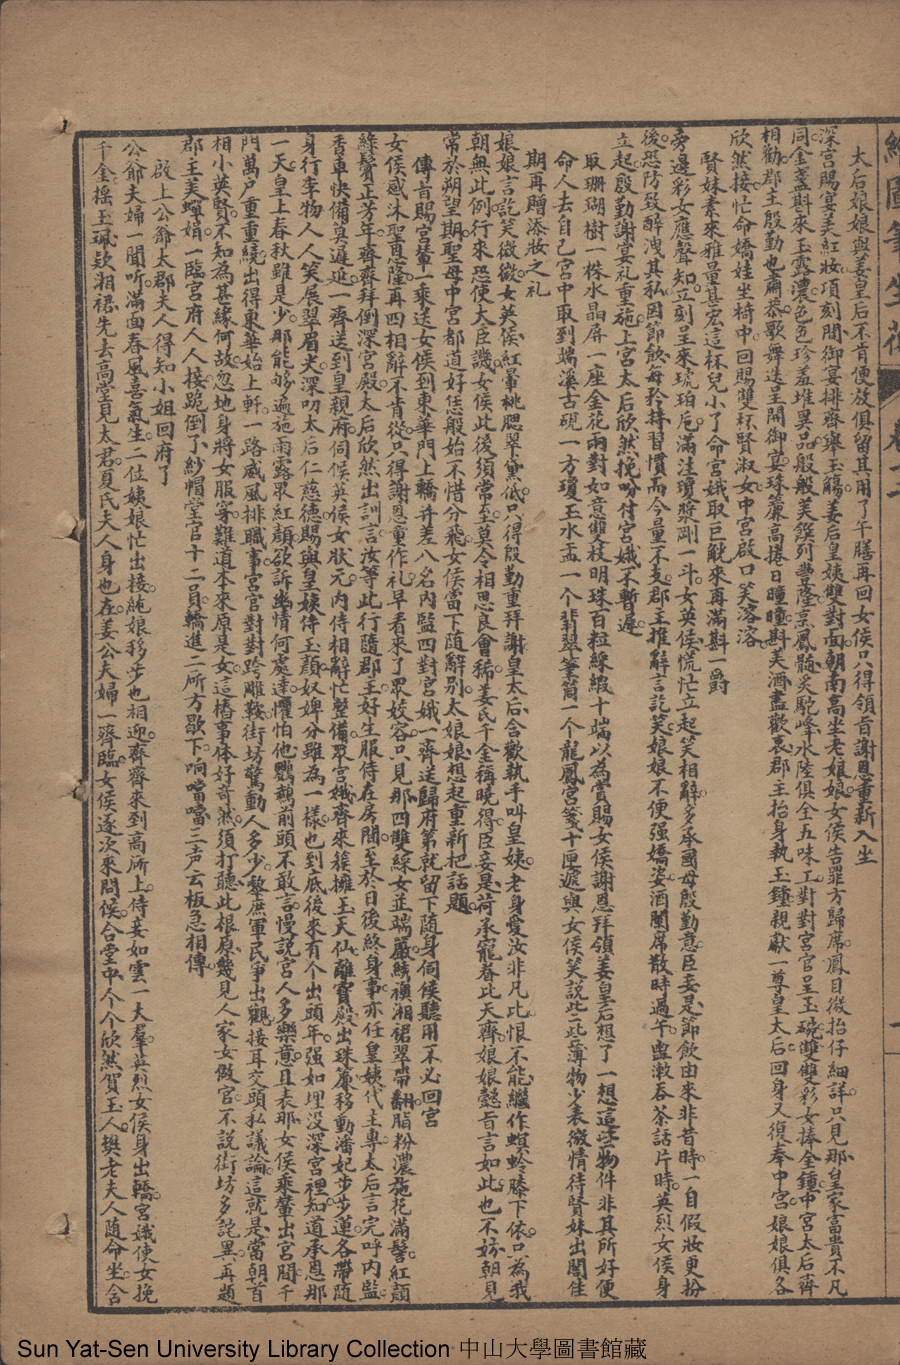 繪圖筆生花 卷十二
太后娘娘與姜皇后不肯便放俱留其用了午膳再回女侯只得領旨謝恩重新入坐
深宮賜宴美紅妝項刻間御宴排齊舉玉觴姜后皇姨雙對面朝南高坐老娘娘女侯告罪方歸席鳳目微抬仔細詳只見那皇家富貴不凡
同金盞斟來玉露濃色色珍羞堆異品般般美饌列豐隆京鳳髓炙駝峰水陸俱全五味工對對宮官呈玉碗雙雙彩女捧金鐘中宮太后齊
相勸郡主殷勤也肅恭歌舞迭呈開御宴珠簾高捲日曈曈斟美酒盡歡衷郡主抬身執玉鍾親獻一尊皇太后回身又復奉中宮娘娘俱各
欣然接忙命嬌娃坐椅中回賜雙杯賢淑女中宮啟口笑溶溶
賢妹素來雅量甚宏這杯兒小了命宮娥取巨觥來再滿斟一爵
旁邊彩女應聲知立刻呈來琥珀卮滿注瓊漿剛一斗女英侯慌忙立起笑相辭多承國母殷勤意臣妾是節飲由來非昔時一自假妝更扮
後恐防致醉洩其私因節飲每矜持習慣而今量不支郡主推辭言訖笑娘娘不便強嬌姿酒闌席散時過午盥漱吞茶話片時英烈女侯身
立起殷勤謝宴礼重施上宮太后欣然挽吩付宮娥不暫遲
取珊瑚樹一株水晶屏一座金花兩對如意雙枝明珠百粒綵緞十端以為賞賜女侯謝恩拜領姜皇后想了一想這些物件非其所好便
命人去自己宮中取到端溪古硯一方瓊玉水盂一个翡翠筆筒一个龍鳳宮箋十匣遞與女侯笑說些些薄物少表微情待賢妹出閣佳
期再贈添妝之礼
娘娘言訖笑微微女英侯紅暈桃腮翠黛低只得殷勤重拜謝皇太后含歡執手叫皇姨老身愛汝非凡比恨不能繼作螟蛉膝下依只為我
朝無此例行來恐使大臣譏女侯此後須常至莫令相思良會稀姜氏千金稱曉得臣妾是荷承寵眷比天齊娘娘懿旨言如此也不妨朝見
常於朔望期聖母中宮都道好恁般始不惜分飛女侯當下隨辭別太娘娘想起重新把話題
傳旨賜宮輦一乘送女侯到東華門上轎并差八名內監四對宮娥一齊送歸府第就留下隨身伺候聽用不必回宮
女侯感沐聖恩隆再四相辭不肯從只得謝恩重作礼早看來了眾姣容只見那四雙綵女並瑞嚴綉襖湘裙翠帶翻脂粉濃施花滿髻紅顏
綠鬢正芳年齊齊拜倒深宮殿太后欣然出訓言汝等此行隨郡主好生服侍在房間至於日後終身事亦任皇姨代主專太后言完呼內監
香車快備莫遲延一齊送到皇親府伺候英侯女狀元內侍相辭忙整備眾宮娥齊來簇擁玉天仙離寶殿出珠簾移動潘妃步步蓮各帶隨
身行李物人人笑展翠眉尖深叨太后仁慈德賜與皇姨侍玉顏奴婢分雖為一樣也到底後來有个出頭年强如埋没深宮裡知道承恩那
一天皇上春秋雖是少那能够遍施雨露眾紅顏欲訴幽情何處達懼怕他鸚鵡前頭不敢言慢說宮人多樂意且表那女侯乘輦出宮間千
門萬户重重繞出得東華始上軒一路威風排職事宮官對對跨雕鞍街坊驚動人多少黎庶軍民爭出觀接耳交頭私議論這就是當朝首
相小英賢不知為甚緣何故忽地身將女服穿難道本來原是女這樁事体好奇然須打聽此根原幾見人家女做官不説街坊多詫異再題
郡主美嬋娟一臨宮府人人接跪倒了紗帽堂官十二員轎進二所方歇下响噹噹三声云板急相傳
啟上公爺太郡夫人得知小姐回府了
公爺夫婦一聞听滿面春風喜氣生二位姨娘忙出接純娘移步也相迎齊齊來到高所上侍妾如雲一大羣英烈女侯身出轎宮娥使女挽
千金摇玉珮欵湘裙先去高堂見太君夏氏夫人身也在姜公夫婦一齊臨女侯逐次來問候合堂中个个欣然賀玉人樊老夫人随命坐含
Sun Yat-Sen University Library Collection 中山大學圖書館藏